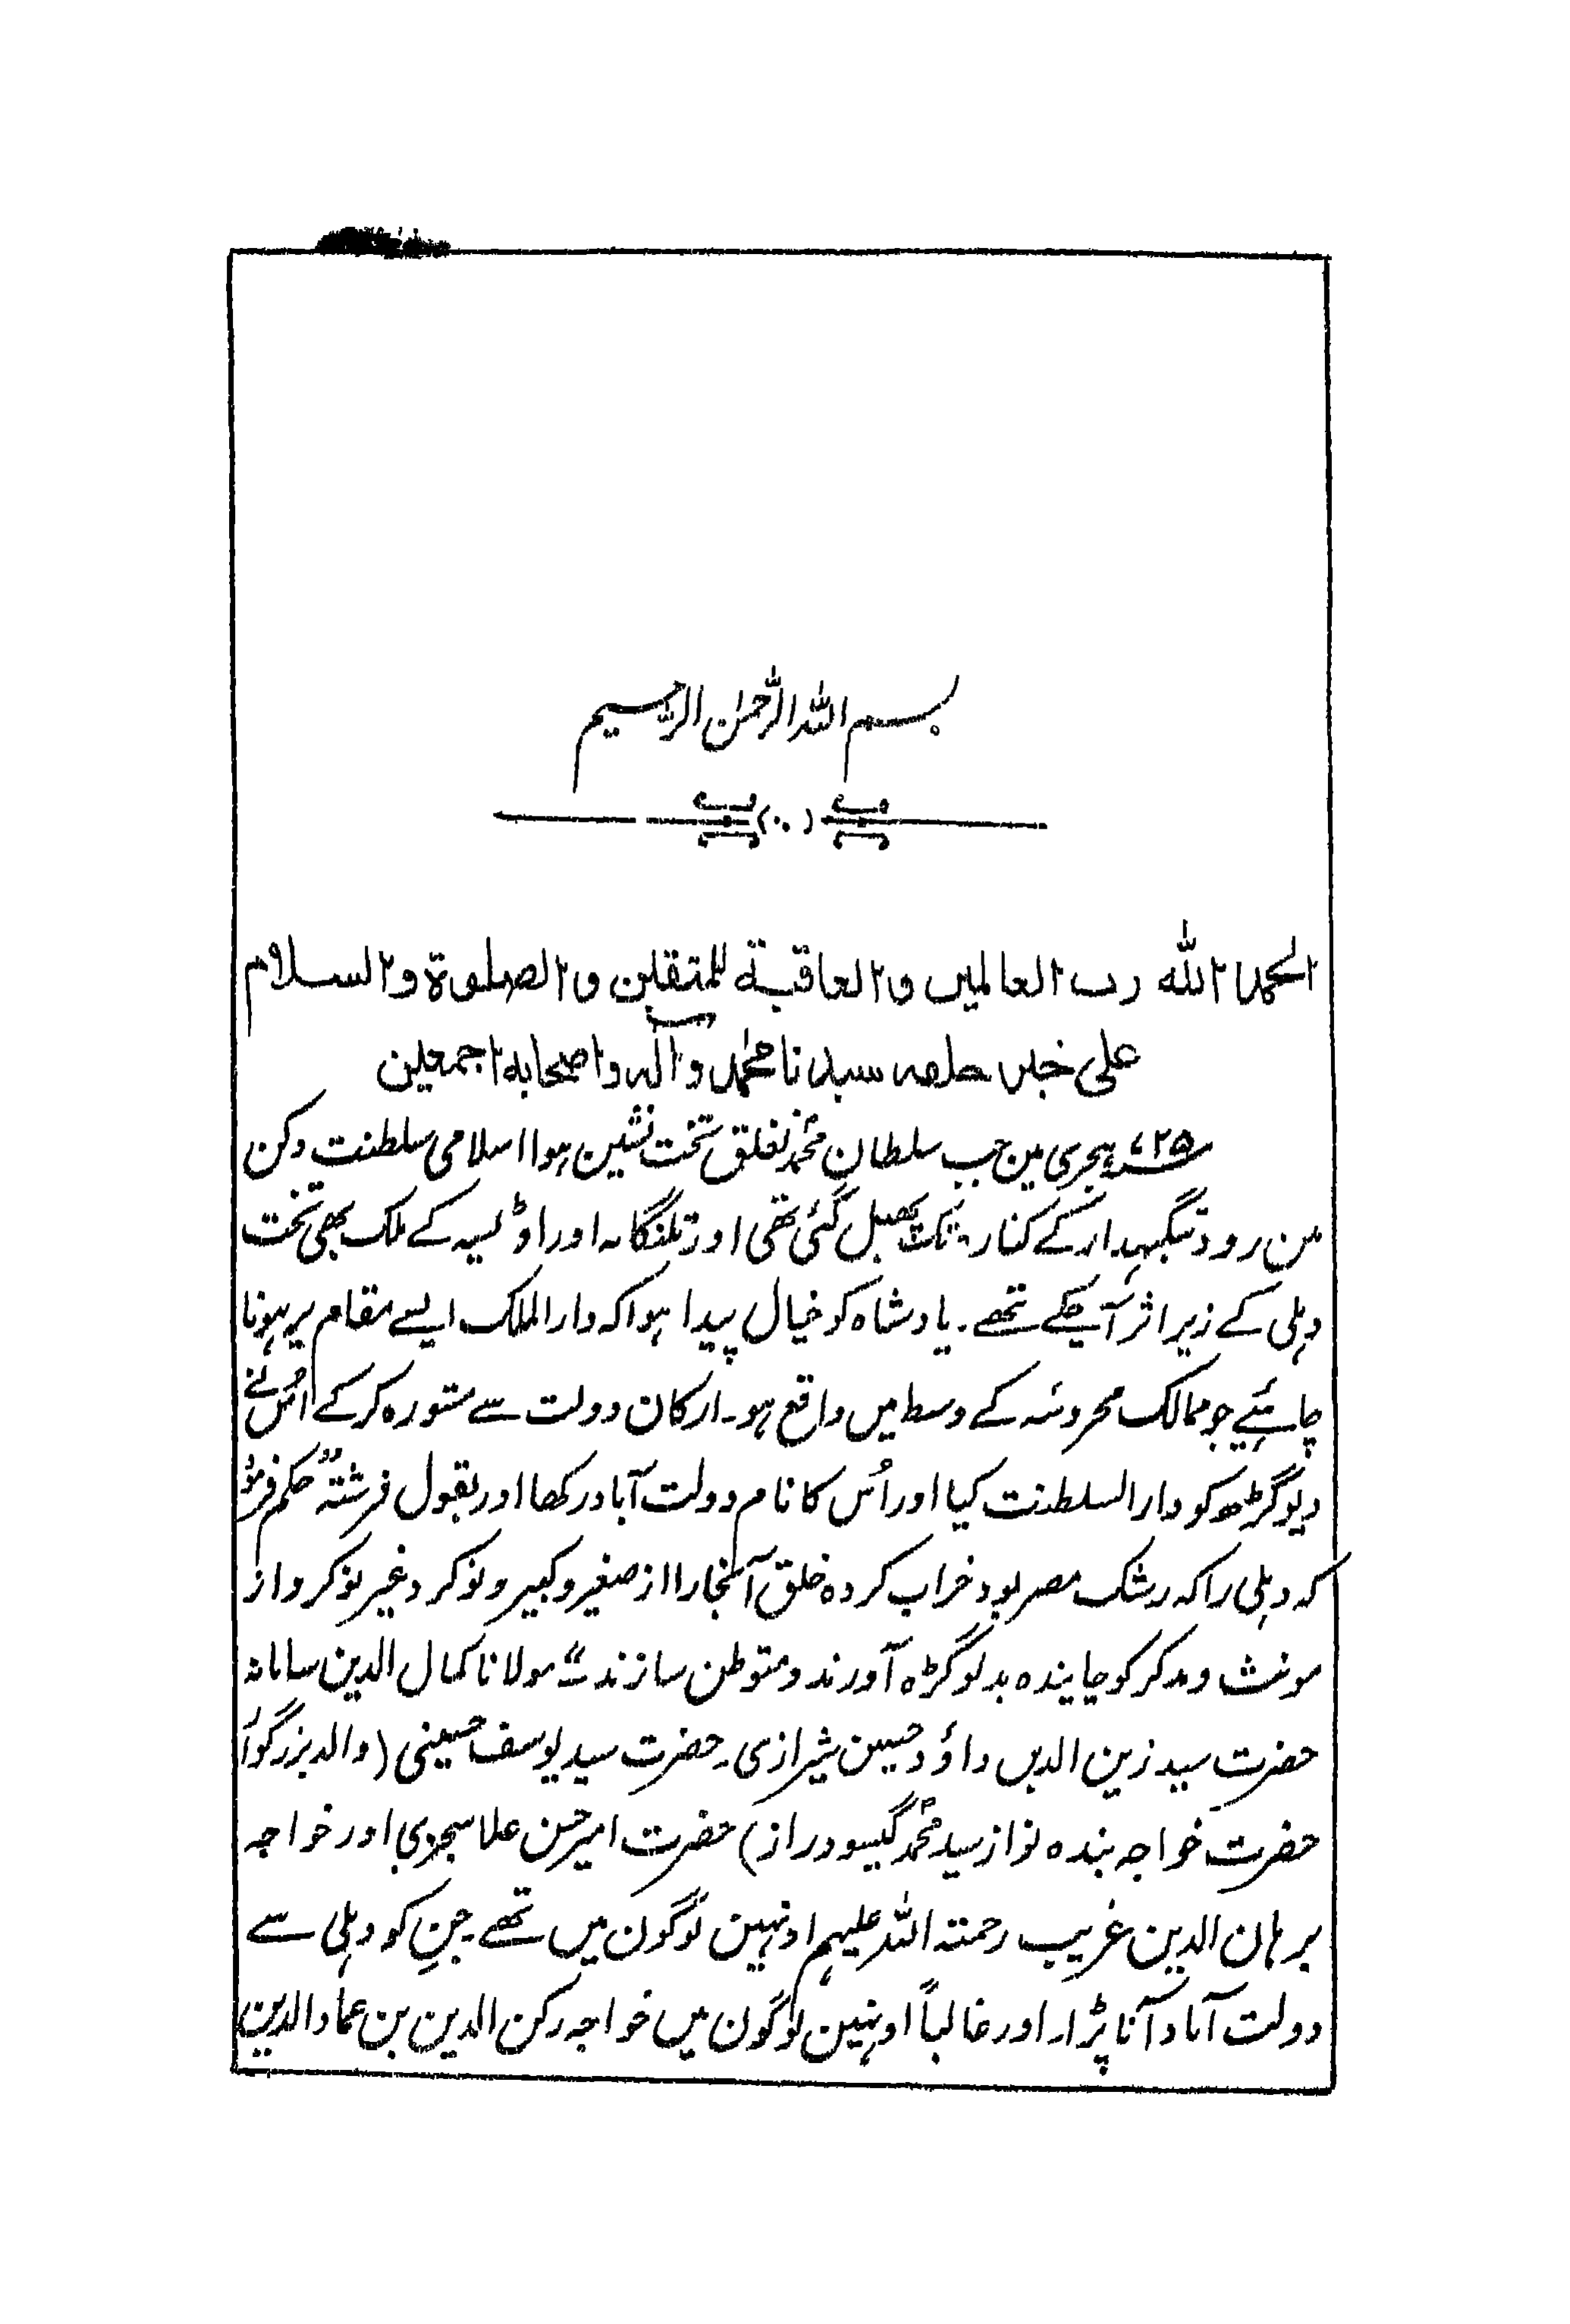 بسم اللہ الرحمٰن الرحیم
الحمد اللہ رب العالمین والعاقبة للمتقین والصلوة والسلام
علی خیر خلقه سیدنا محمد وآله واصحابه اجمعین
۷۲۵ ہجری مین جب سلطان محمد تغلق تخت نشین ہوا اسلامی سلطنت دکن
مین رود تنگبہدار کے کنارے تک پھیل گئی تھی اور تلنگانہ اور اوڈیسہ کے ملک بھی تخت
دہلی کے زیر اثر آچکے تھے۔ بادشاہ کو خیال پیدا ہوا کہ دارالملک ایسے مقام پر ہونا
چاہئیے جو ممالک محروسہ کے وسط میں واقع ہو۔ ارکان دولت سے مشورہ کرکے اُس نے
دیوگڑھ کو دارالسلطنت کیا اور اُس کا نام دولت آباد رکھا اور بقول فرشتہ ”حکم فرمود
کہ دہلی را کہ رشک مصر بود خراب کردہ خلق آنجا را از صغیر و کبیر و نوکر و غیر نوکر و از
مونث و مذکر کوچانیدہ بدیوگڑہ آورند و متوطن سازند“ مولانا کمال الدین سامانہ
حضرت سید زین الدین داؤد حسین شیرازی۔ حضرت سید یوسف حسینی (والد بزرگوار
حضرت خواجہ بندہ نواز سید محمد گیسودراز) حضرت امیر حسن علا سجزی اور خواجہ
برہان الدین غریب رحمتہ اللہ علیہم اونہین لوگون میں تھے۔ جن کو دہلی سے
دولت آباد آنا پڑا۔ اور غالباً اونہین لوگون میں خواجہ رکن الدین بن عماد الدین